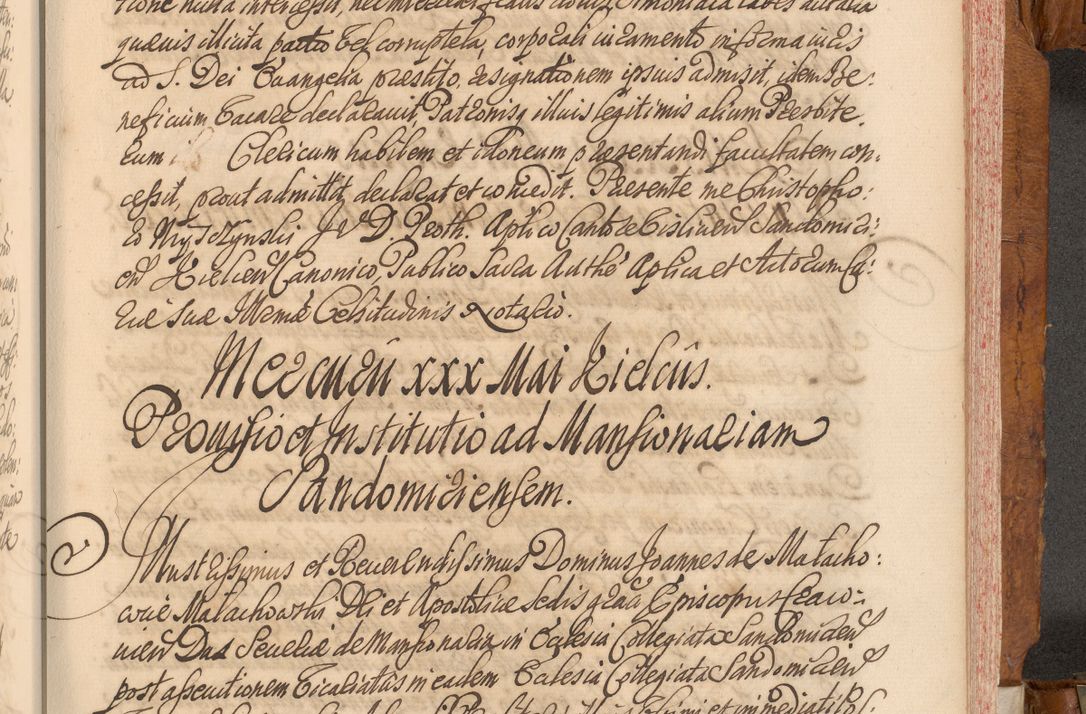 quævis illicita pactio vel corruptela, corporali iuramento in forma iuris
ad S. Dei Evangelia præstito, resignationem ipsius admisit, idem Be:
neficium vacare declaravit, Patronisq illius legitimis alium Presbite,
rum Clericum habilem et idoneum præsentandi facultatem con,
cessit, prout admittit, declarat et concedit. Præsente me Christopho:
ro JVD. Proth. Aplico Canto Sandomiri:
en Kielcen Canonico, Publico Sacra Authe Aplica et Actorum Cu:
riæ Suæ Illmæ Celsitudinis Notario.
Mercurii xxx Maii Kielciis.
Provisio et Institutio ad Mansionariam
Sandomiriensem.
Illustrissimus et Reverendissimus Dominus Joannes de Malacho:
wice Malachowski Dei et Apostolicæ Sedis graa Episcopus Craco:
vien Dux Severiæ de Mansionaria in Ecclesia Collegiata Sandomirien
post assecutionem Vicariatus in eadem Ecclesia Collegiata Sandomirien